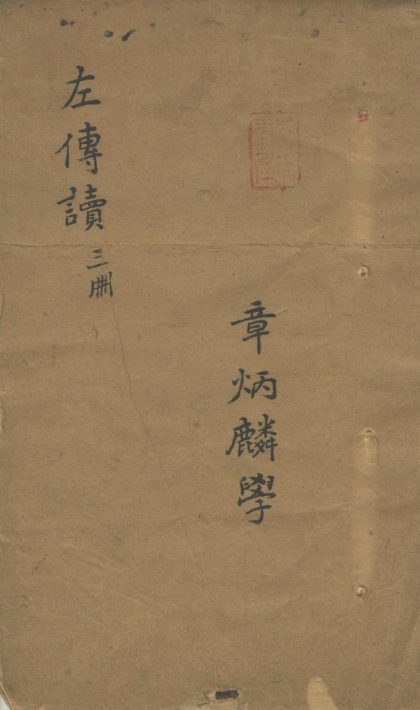 章炳麟學
左傳讀
三册